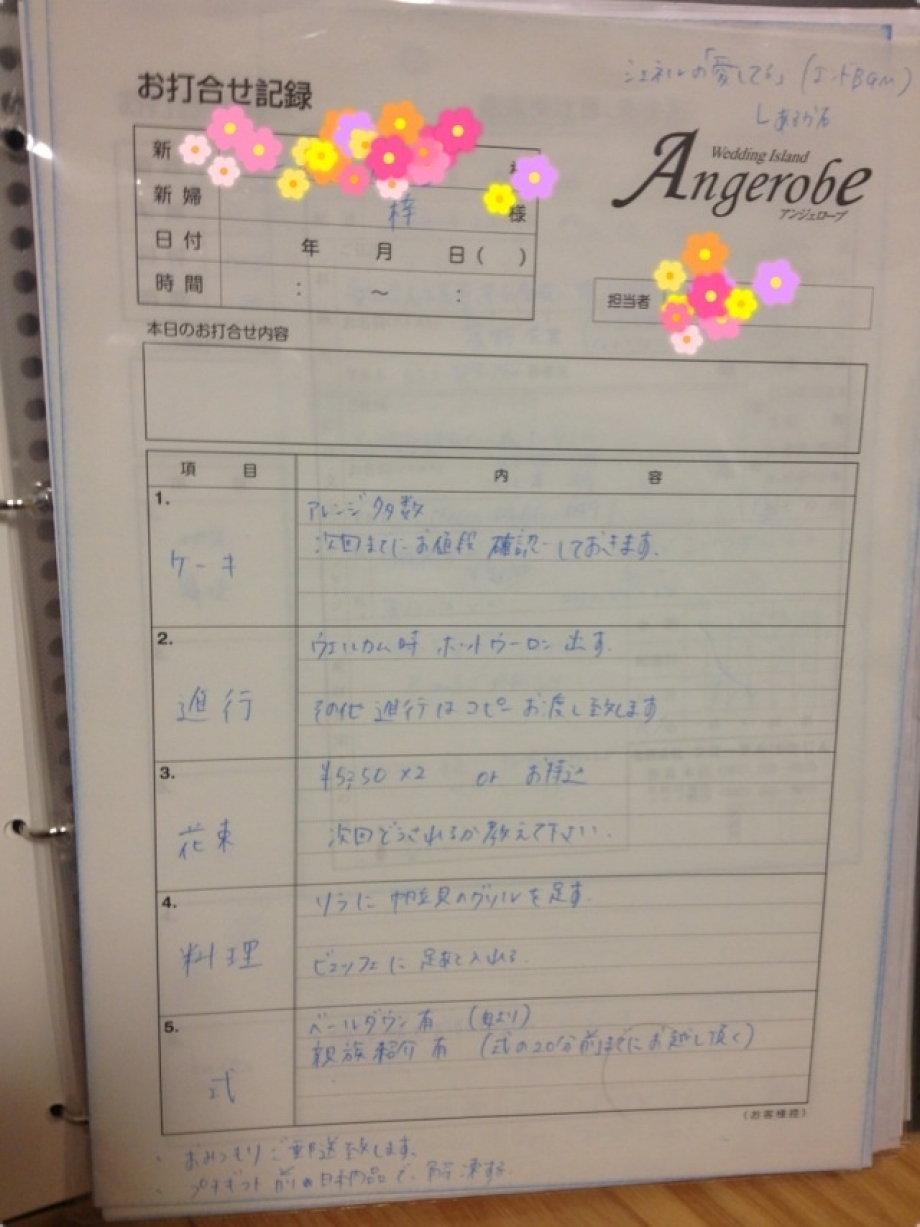 シェネルの「愛してる」(エンドBGM)
お打合せ記録
Wedding Island
Angerobe
アンジェローブ
新
新婦 梓 様
日付 年 月 日( )
時間 : ～ :
担当者
本日のお打合せ内容
項目 内容
1.
ケーキ
アレンジ多数
次回までにお値段 確認しておきます。
2.
進行
ウェルカム時 ホットウーロン出す。
その他 進行はコピーお渡し致します
3.
花束
¥5250×2 or お持込
次回どうされるか教えて下さい。
4.
料理
リラに 帆立貝のグリルを足す。
ビュッフェに 入れる。
5.
式
ベールダウン有 (母より)
親族紹介有 (式の20分前までにお越し頂く)
(お客様控)
・おみつもりご郵送致します。
・プチギフト 前の日納品で、解凍する。